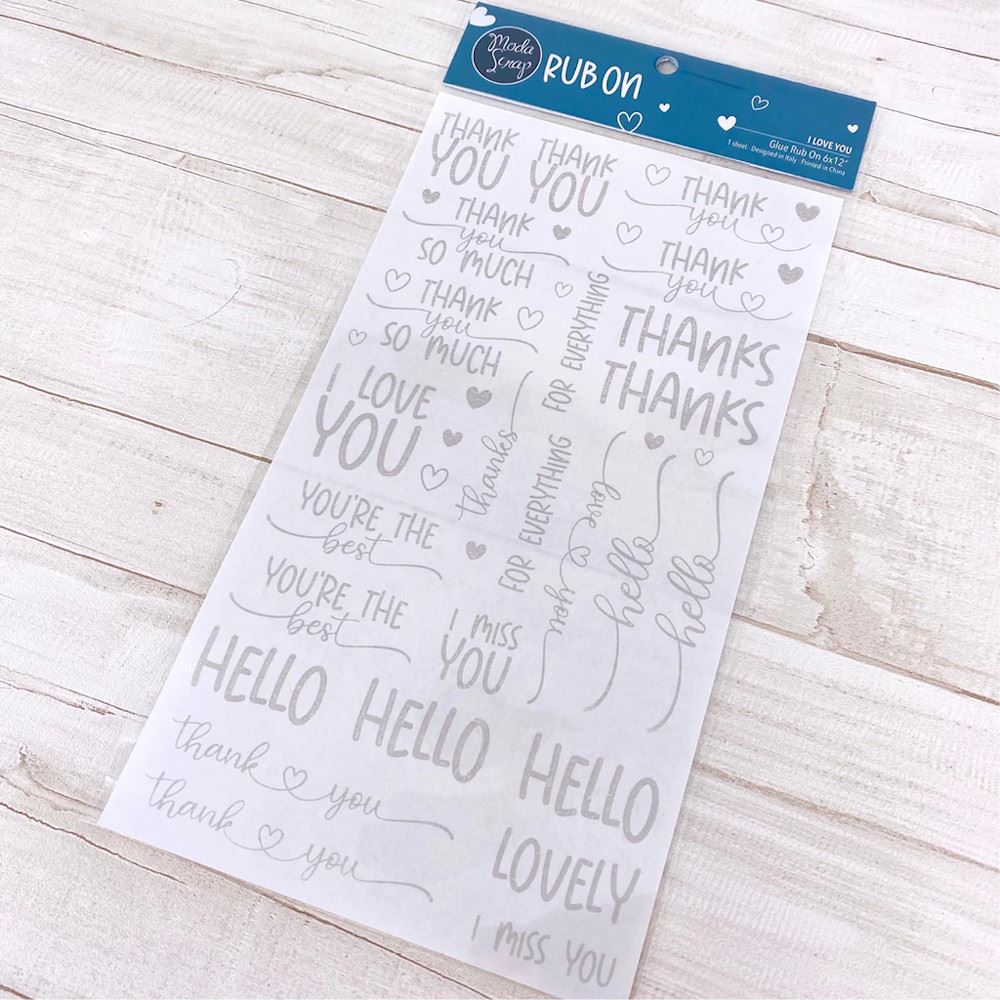 Moda
Scrap
RUB ON
I LOVE YOU
Glue Rub On 6x12"
1 sheet · Designed in Italy · Printed in China
THANK
YOU
THANK
YOU
THANK
you
THANK
you
SO MUCH
THANK
you
THANK
you
SO MUCH
FOR EVERYTHING
THANKS
THANKS
I LOVE
YOU
thanks
FOR EVERYTHING
love
you
hello
hello
YOU'RE THE
best
YOU'RE THE
best
I MISS
YOU
HELLO
HELLO
HELLO
thank you
thank you
LOVELY
I MISS YOU